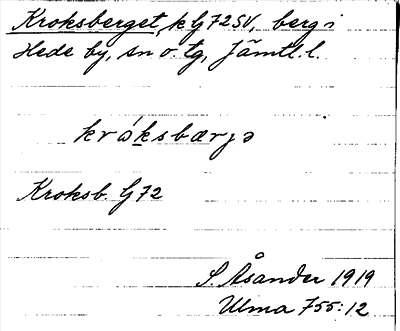 Kroksberget, k G 72 SV, berg i
Hede by, sn o. tg, Jämtl. l.
kråksbærjə
Kroksb. G 72
S. Åsander 1919
Ulma 755:12